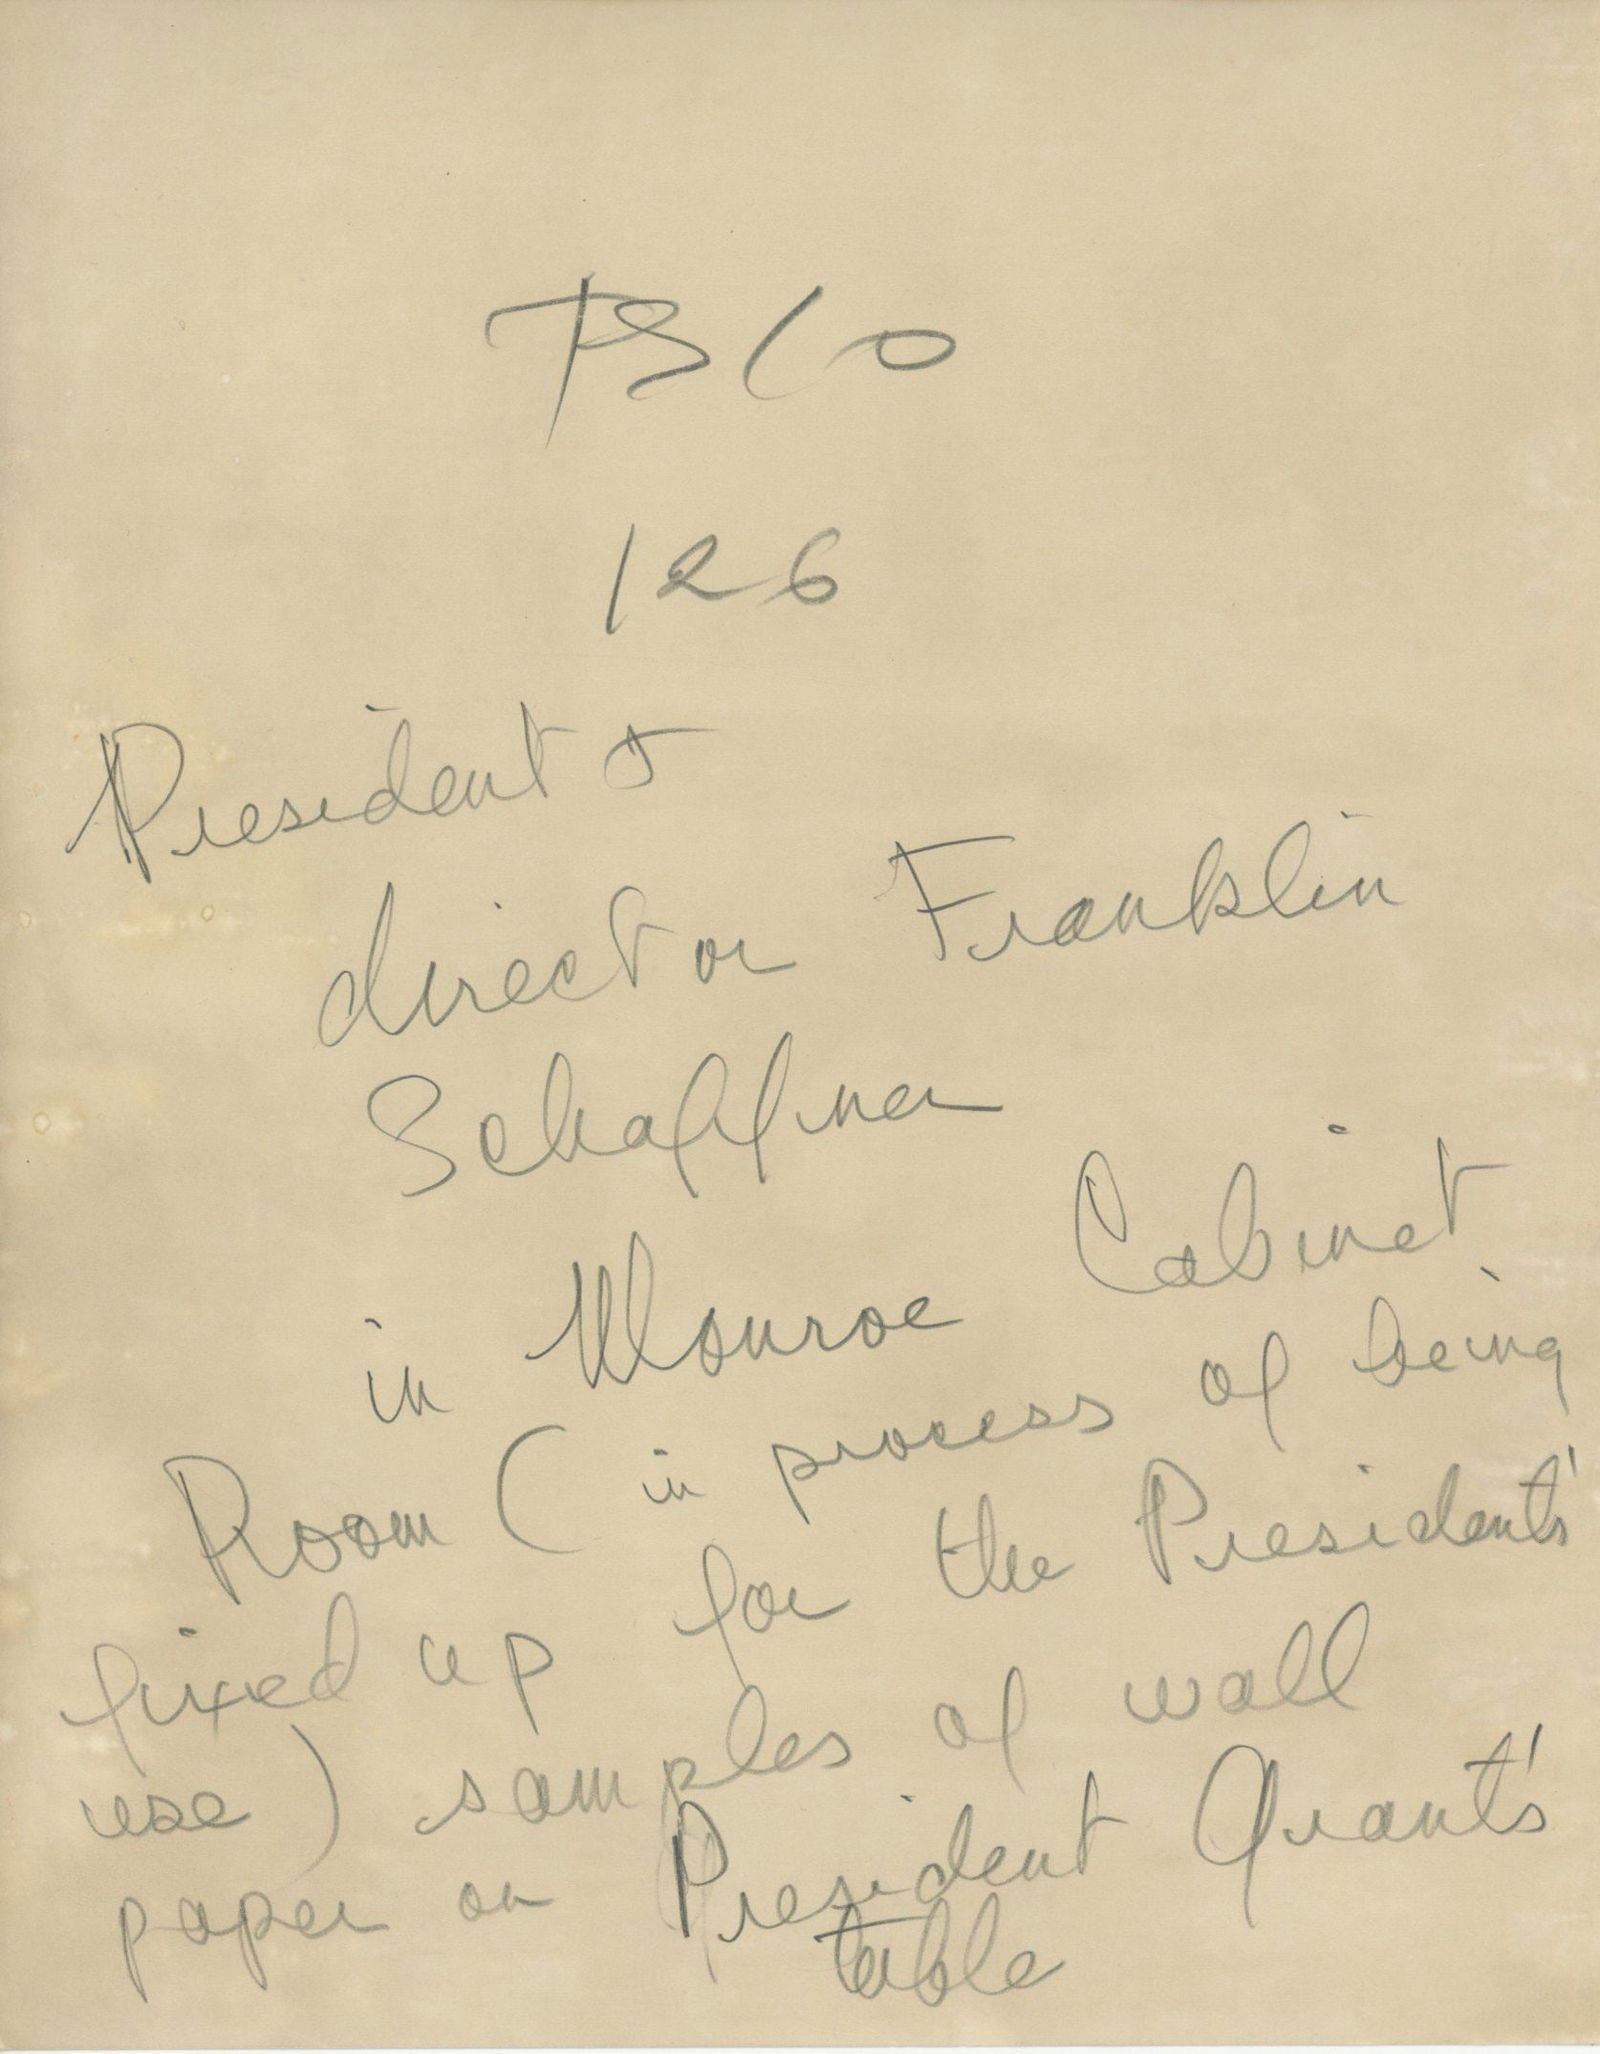 126
President &
director Franklin
Schaffner
in Monroe Cabinet
Room (in process of being
fixed up for the Presidents'
use) samples of wall
paper on President Grant's
table